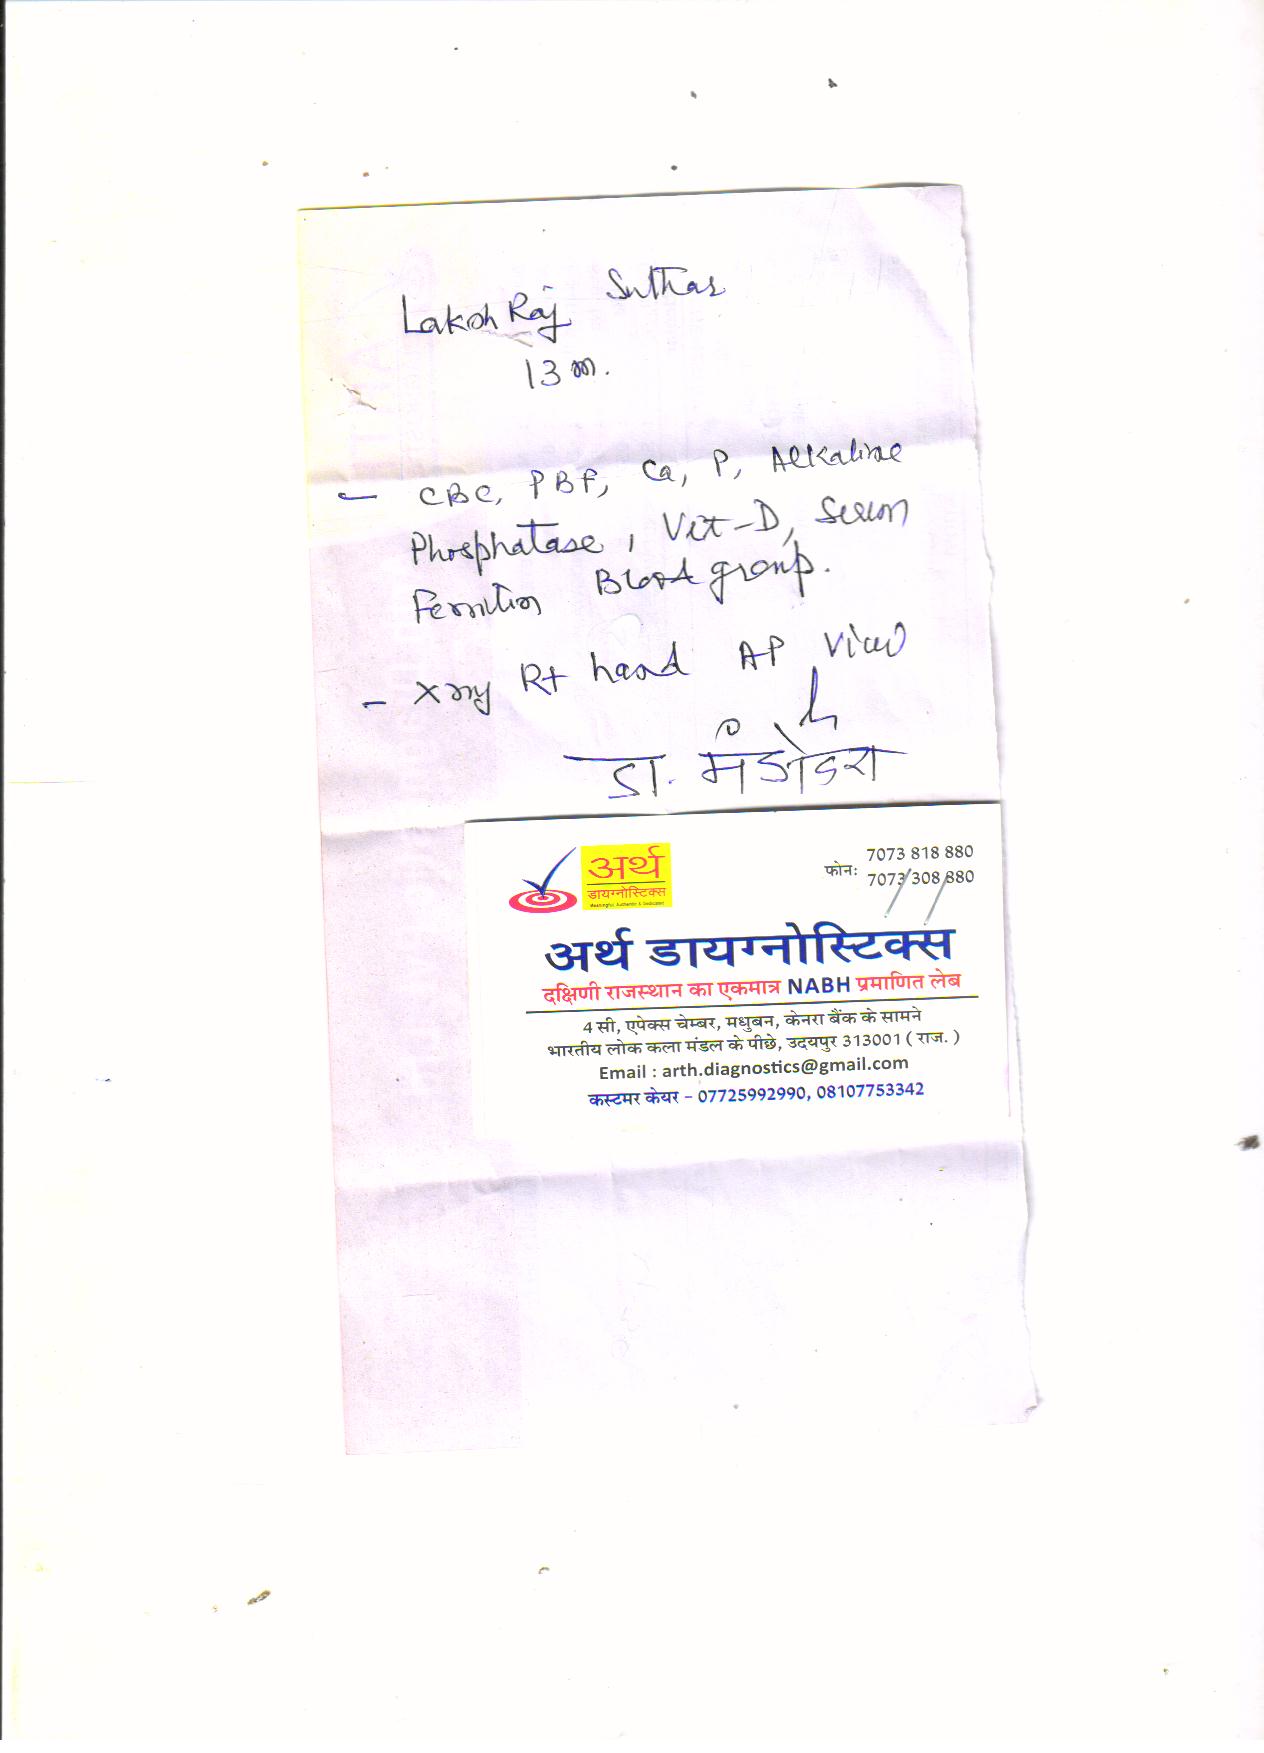 Laksh Raj Suthar
13 m.
- CBC, PBF, Ca, P, Alkaline
Phosphatase, Vit-D, Serum
Ferritin Blood group.
- Xray Rt hand AP view
डा.
अर्थ
डायग्नोस्टिक्स
Meaningful, Authentic & Dedicated
फोनः 7073 818 880
7073 308 880
अर्थ डायग्नोस्टिक्स
दक्षिणी राजस्थान का एकमात्र NABH प्रमाणित लेब
4 सी, एपेक्स चेम्बर, मधुबन, केनरा बैंक के सामने
भारतीय लोक कला मंडल के पीछे, उदयपुर 313001 ( राज. )
Email : arth.diagnostics@gmail.com
कस्टमर केयर – 07725992990, 08107753342